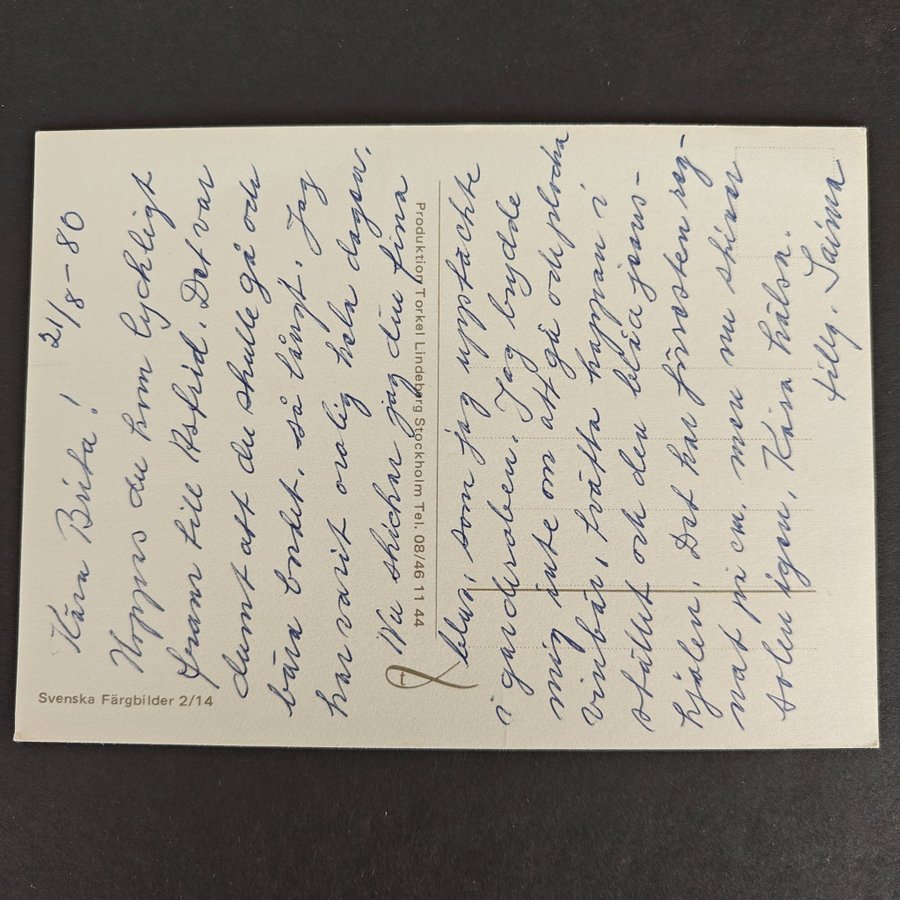 21/8-80
Kära Brita!
Hoppas du kom lyckligt
fram till Astrid. Det var
dumt att du skulle gå och
bära bordet, så långt. Jag
har varit orolig hela dagen.
Nu skickar jag din fina
blus, som jag upptäckte
i garderoben. Jag brydde
mig inte om att gå och plocka
vinbär, tvätta kappan i
stället och den blåa jeans-
kjolen. Det har förresten reg-
nat på em. men nu skiner
solen igen. Kära hälsn.
tillg. Saima
Svenska Färgbilder 2/14
Produktion Torkel Lindeberg Stockholm Tel. 08/46 11 44